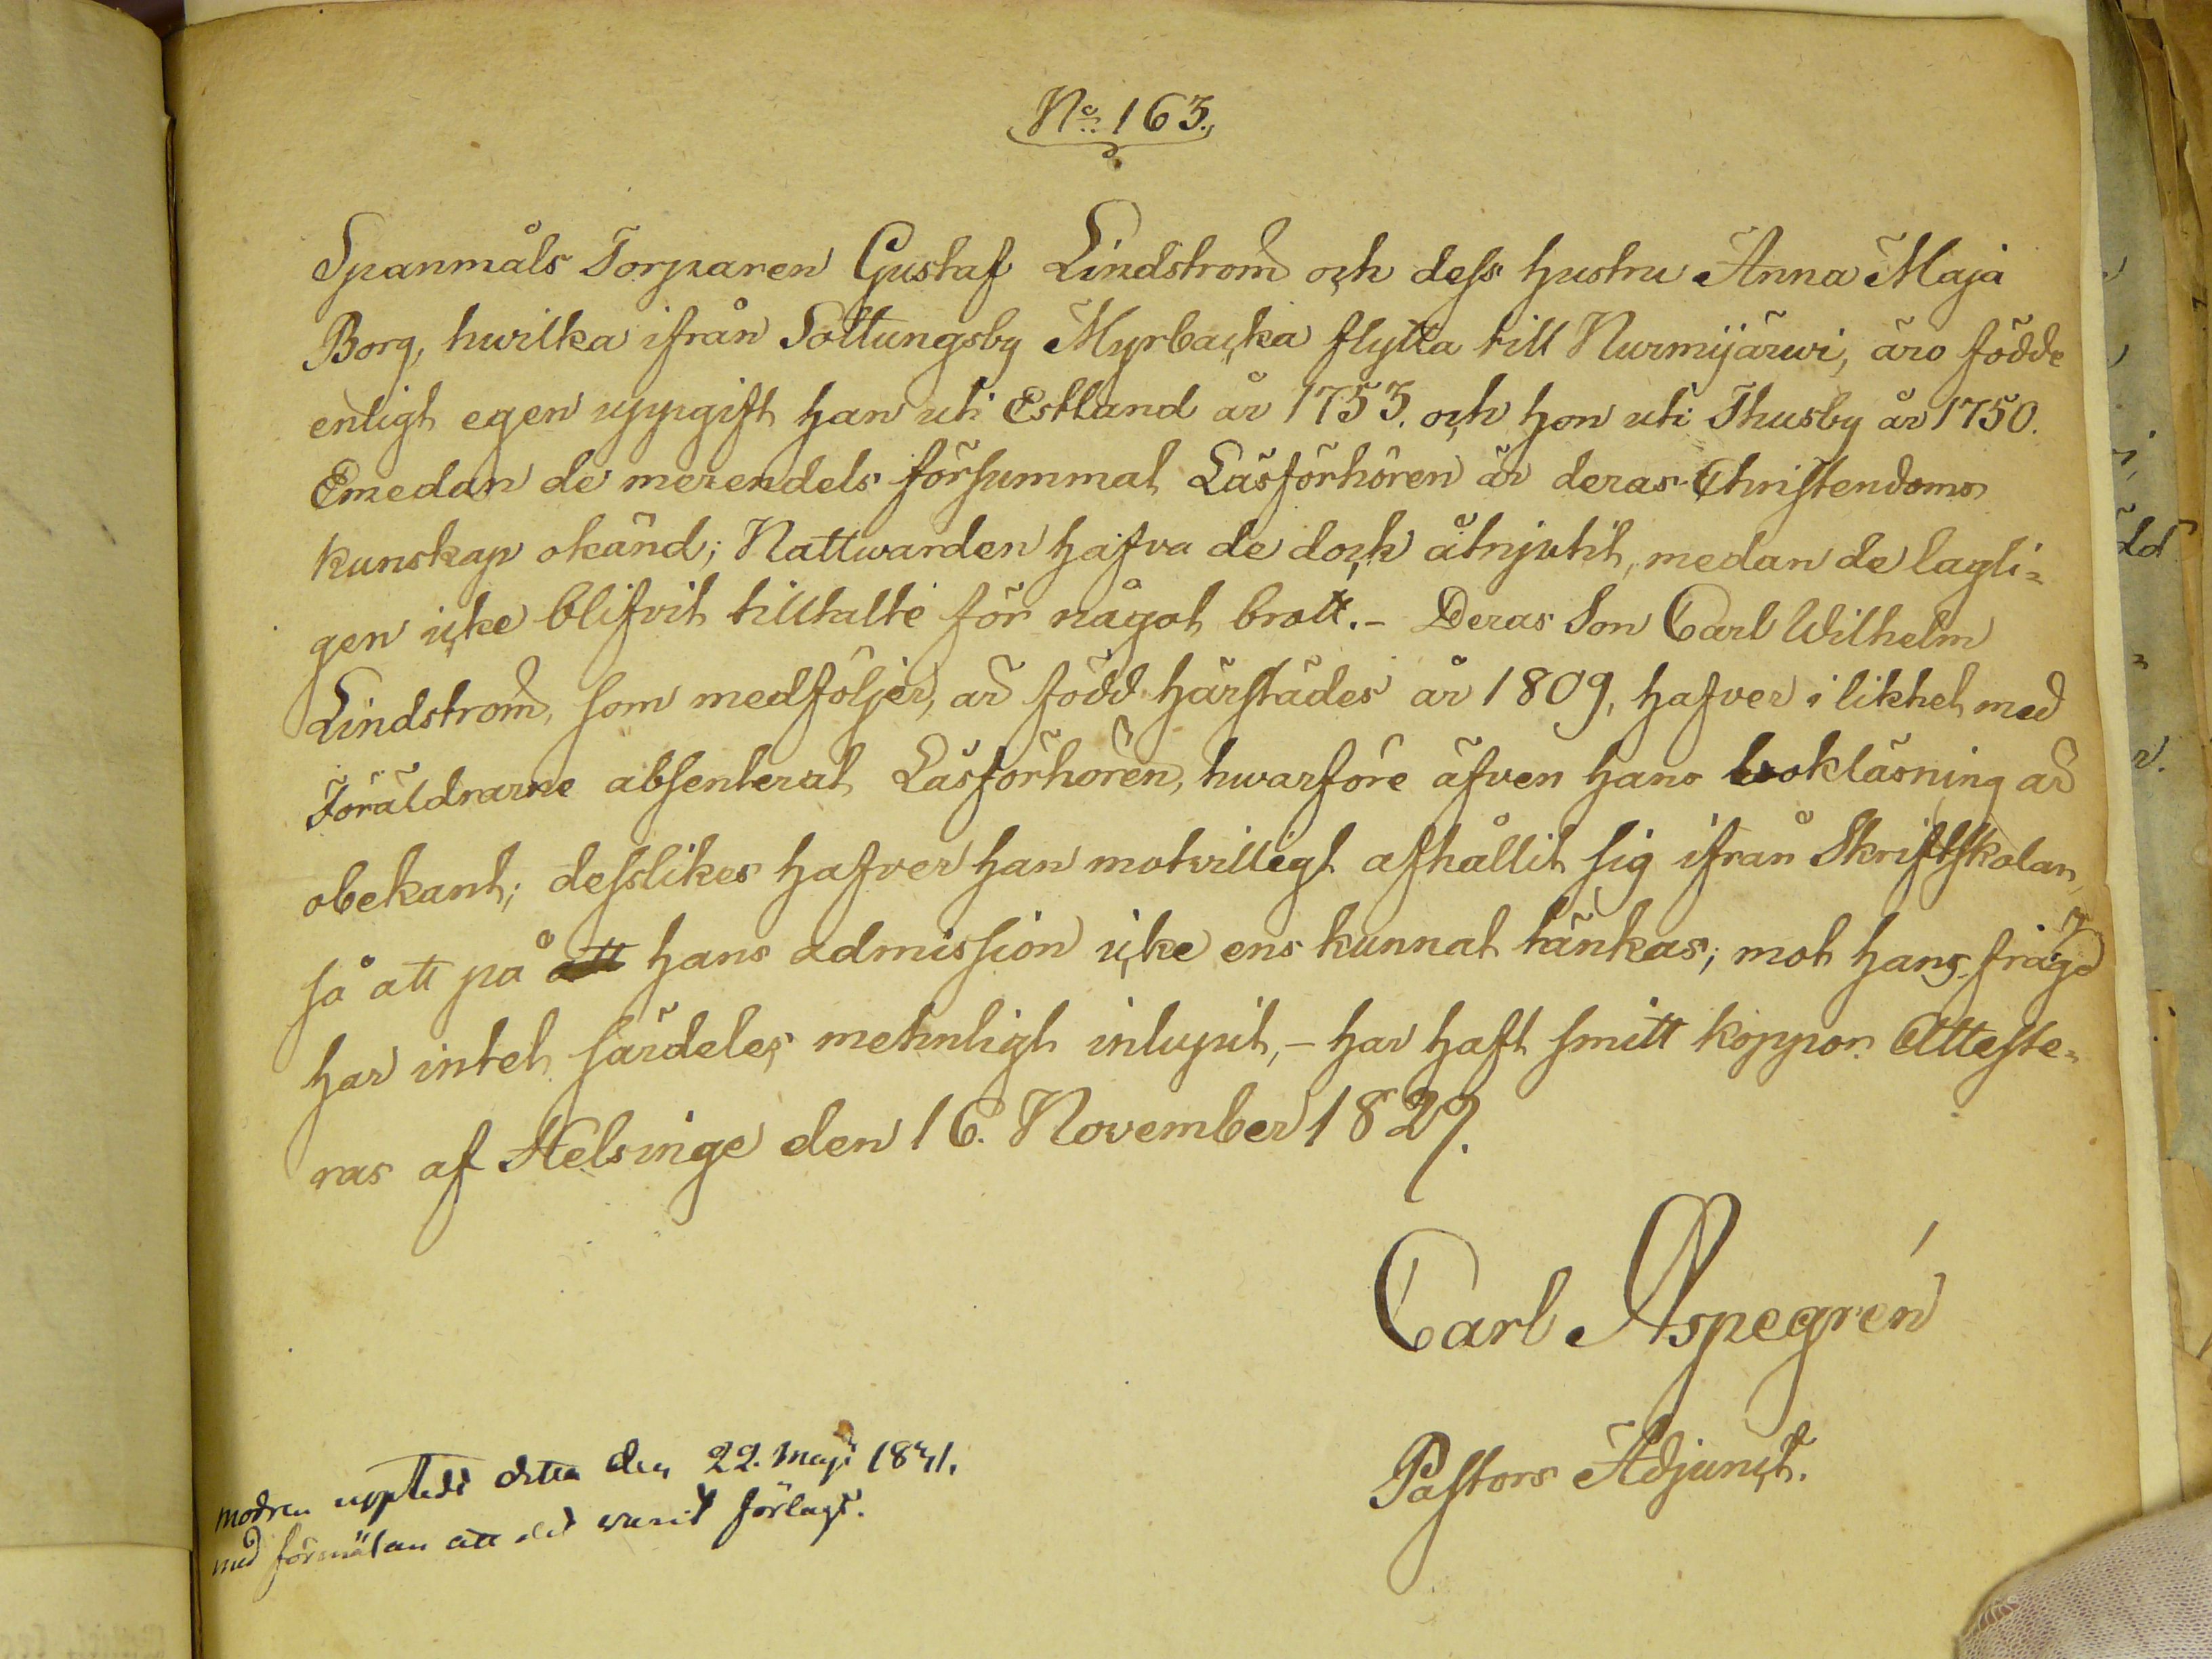 No 163.
Spanmåls Torparen Gustaf Lindström och dess hustru Anna Maja
Borg, hwilka ifrån Sottungsby Myrbacka flytta till Nurmijärwi, äro födde
enligt egen uppgift han uti Estland år 1753. och hon uti Thusby år 1750.
Emedan de merendels försummat Läsförhören är deras Christendoms
kunskap okänd; Nattwarden hafva de dock åtnjutit, medan de lagli=
gen icke blifvit tilltalte för något brott. - Deras Son Carl Wilhelm
Lindström, som medföljer, är född härstädes år 1809, hafver i likhet med
Föräldrarne absenterat Läsförhören, hwarföre äfven hans bokläsning är
obekant; desslikes hafver han motvilligt afhållit sig ifrån Skriftskolan,
så att på att hans admission icke ens kunnat tänkas; mot hans frägd
har intet särdeles mehnligt inlupit, - har haft smitt koppor. Atteste=
ras af Helsinge den 16. November 1827.
Carl Aspegrén
Pastors Adjunct.
modren upptede detta den 22. Maji 1841.
med förmälan att det varit förlagt.